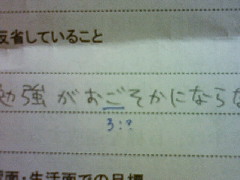 反省していること
勉強がおごそかにならな
ろ:?
習面・生活面での目標